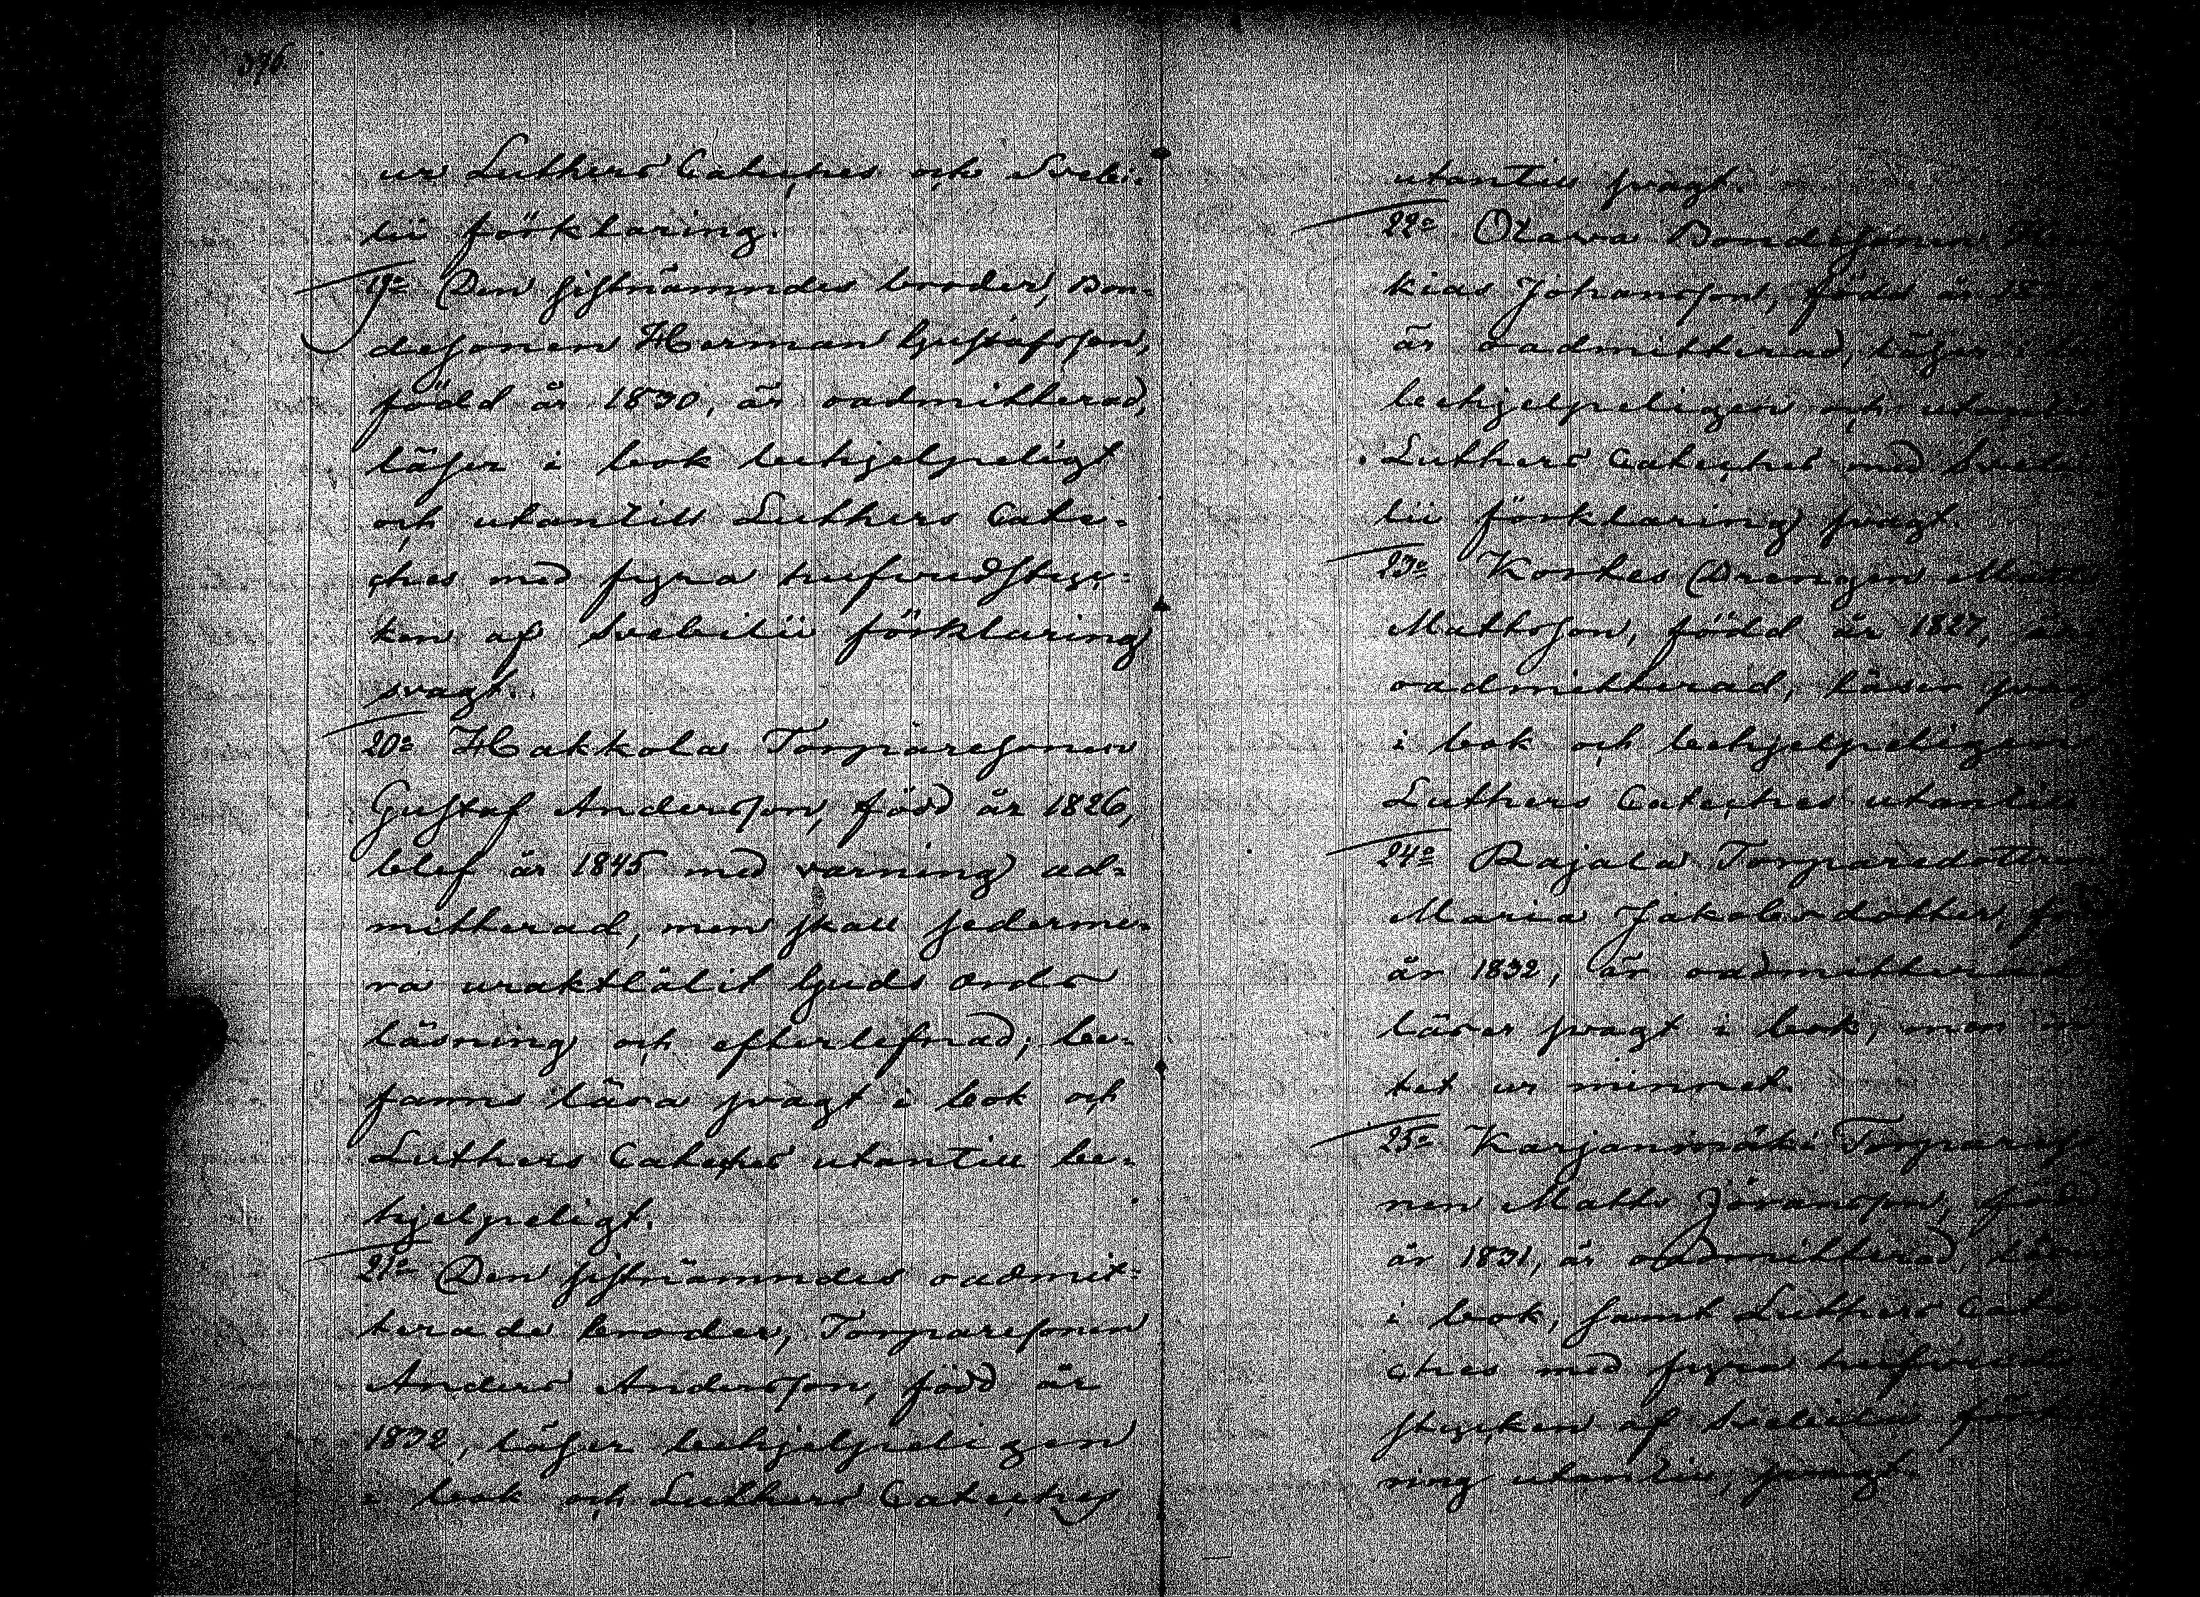 396
ur Luthers Cateches och Svebi-
lii förklaring.
19o Den sistnämndes broder, Bon-
desonen Herman Gustafsson,
född år 1830, är oadmitterad,
läser i bok behjelpeligt
och utantill Luthers Cate-
ches med fyra hufvudstyc-
ken af Svebilii förklaring
svagt.
20o Hakkola Torparesonen
Gustaf Andersson, född år 1826,
blef år 1845 med varning ad-
mitterad, men skall sederme-
ra uraktlåtit Guds Ords
läsning och efterlefnad; be-
fanns läsa svagt i bok och
Luthers Cateches utantill be-
hjelpeligt.
21o Den sistnämndes oadmit-
terade broder, Torparesonen
Anders Andersson, född år
1832, läser behjelpeligen
i bok och Luthers Cateches
utantill svagt.
22o Otava Bondesonen
kias Johansson, född år
är oadmitterad, läser i
behjelpeligen och utantill
Luthers Cateches med Svebi
lii förklaring svagt.
23o Kortes Drengen Matts
Mattsson, född år 1827, är
oadmitterad, läser svagt
i bok och behjelpeligen
Luthers Cateches utantill
24o Rajala Torparedottren
Maria Jakobsdotter,
år 1832, är oadmitterad
läser svagt i bok, men in
tet ur minnet.
25o Karjanmäki Torpareso
nen Matts Göransson, född
år 1831, är oadmitterad, läser
i bok, samt Luthers Cate
ches med fyra hufvud
stycken af Svebilii förkla
ring utantill, svagt.